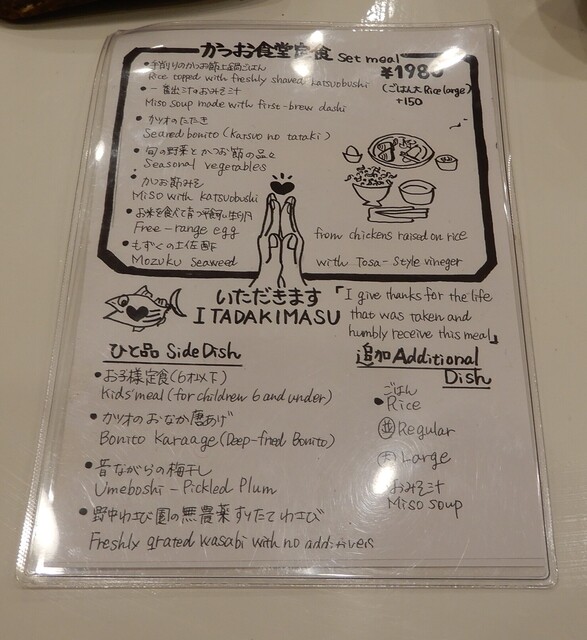 かつお食堂定食 set meal
¥1980
(ごはん大 Rice large)
+150
手削りのかつお節土鍋ごはん
Rice topped with freshly shaved katsuobushi
一番出汁のおみそ汁
Miso soup made with first-brew dashi
カツオのたたき
Seared bonito (katsuo no tataki)
旬の野菜とかつお節の品々
Seasonal vegetables
かつお節みそ
Miso with katsuobushi
お米を食べて育つ平飼い生卵
Free-range egg from chickens raised on rice
もずくの土佐酢
Mozuku seaweed with Tosa-style vineger
いただきます
ITADAKIMASU
「I give thanks for the life
that was taken and
humbly receive this meal」
ひと品 Side Dish
お子様定食(6才以下)
Kids' meal (for children 6 and under)
カツオのおなか唐あげ
Bonito Karaage (Deep-fried Bonito)
昔ながらの梅干し
Umeboshi - Pickled Plum
野中わさび園の無農薬すりたてわさび
Freshly grated wasabi with no additives
追加 Additional
Dish
ごはん
Rice
並 Regular
大 Large
おみそ汁
Miso soup